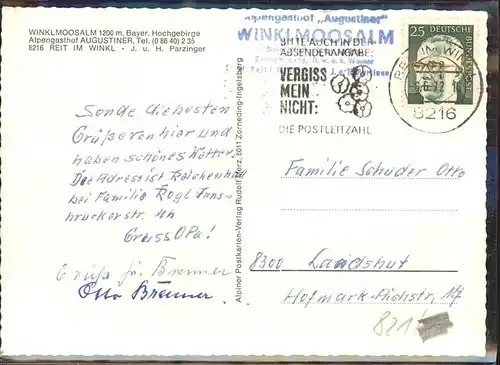 WINKLMOOSALM 1200 m, Bayer. Hochgebirge
Alpengasthof AUGUSTINER, Tel. (0 86 40) 2 35
8216 REIT IM WINKL - J. u. H. Parzinger
Alpengasthof „Augustiner"
WINKLMOOSALM
BITTE AUCH IN DER
ABSENDERANGABE:
VERGISS
MEIN
NICHT:
DIE POSTLEITZAHL
REIT IM WINKL
8216
25
DEUTSCHE
BUNDESPOST
Sende die besten
Grüße von hier und
haben schönes Wetter.
Die Adress ist Reichenhall
bei Familie Rogl Inns-
bruckerstr.
Gruss Opa!
Grüße Brenner
Otto Brenner
Alpiner Postkarten-Verlag Rudolf Herz, 8011 Zorneding-Ingelsberg
Familie Schuder Otto
8300 Landshut
Hofmark-Aichstr. 17
821